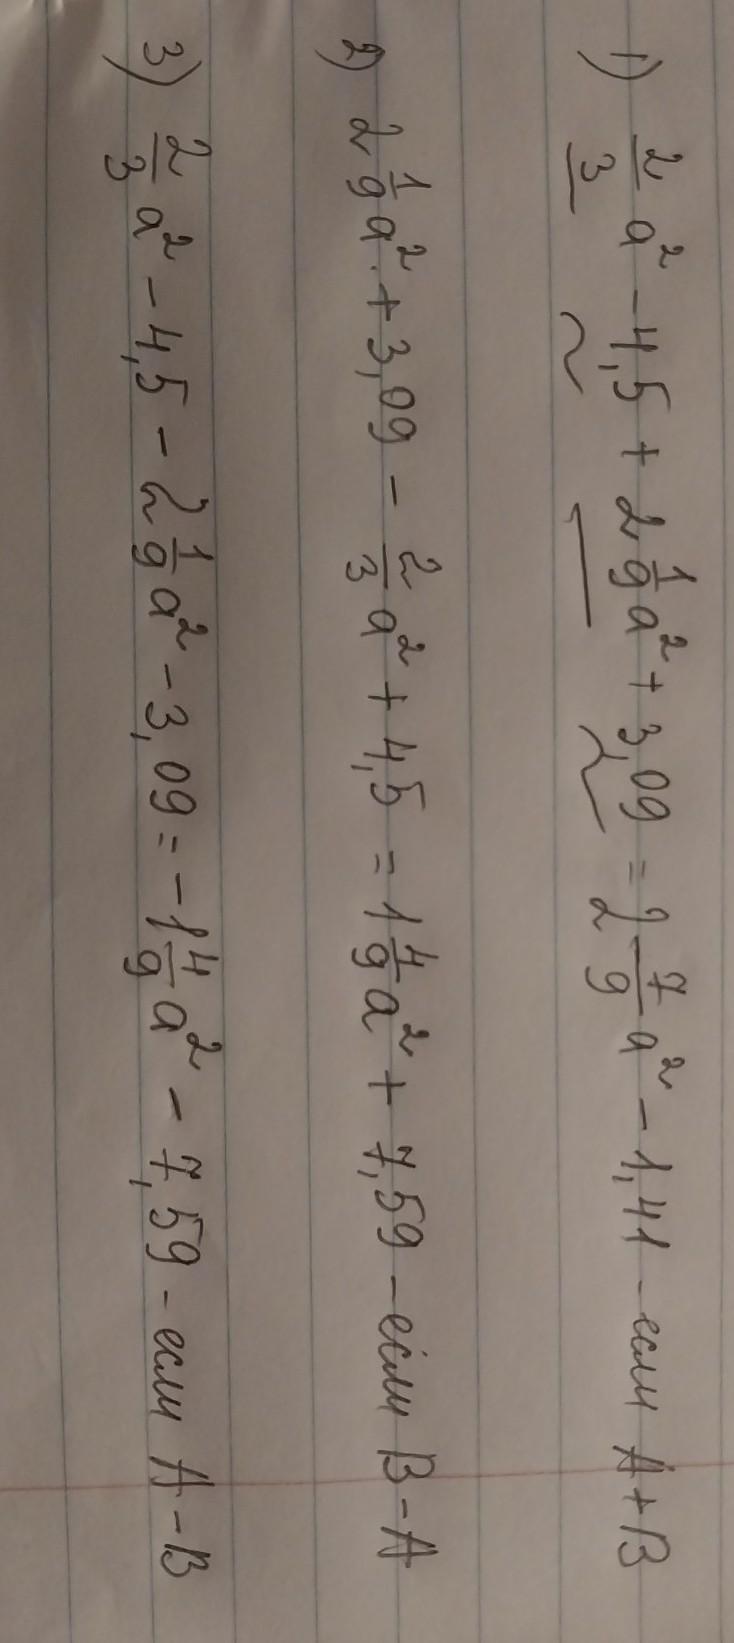 1) 2/3 a² - 4,5 + 2 1/9 a² + 3,09 = 2 7/9 a² - 1,41 - если A + B
2) 2 1/9 a² + 3,09 - 2/3 a² + 4,5 = 1 4/9 a² + 7,59 - если B - A
3) 2/3 a² - 4,5 - 2 1/9 a² - 3,09 = - 1 4/9 a² - 7,59 - если A - B